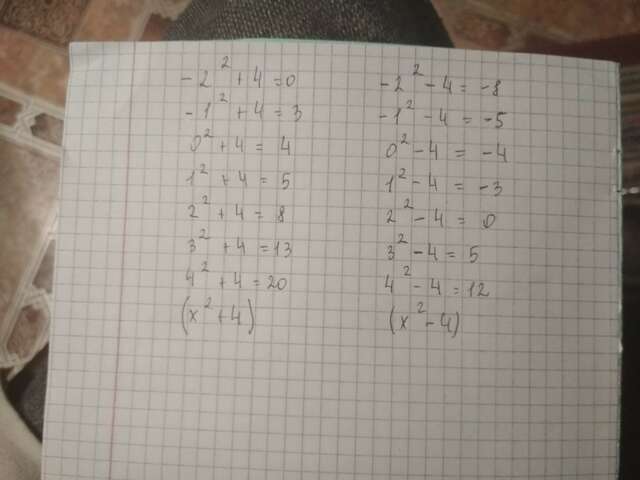 -2² + 4 = 0
-1² + 4 = 3
0² + 4 = 4
1² + 4 = 5
2² + 4 = 8
3² + 4 = 13
4² + 4 = 20
(x² + 4)
-2² - 4 = -8
-1² - 4 = -5
0² - 4 = -4
1² - 4 = -3
2² - 4 = 0
3² - 4 = 5
4² - 4 = 12
(x² - 4)